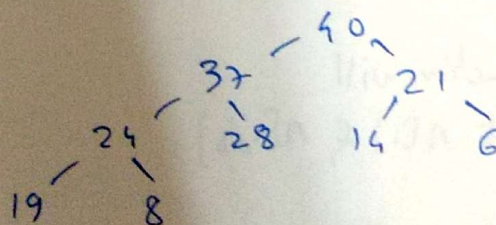 40
37 21
24 28 14 6
19 8